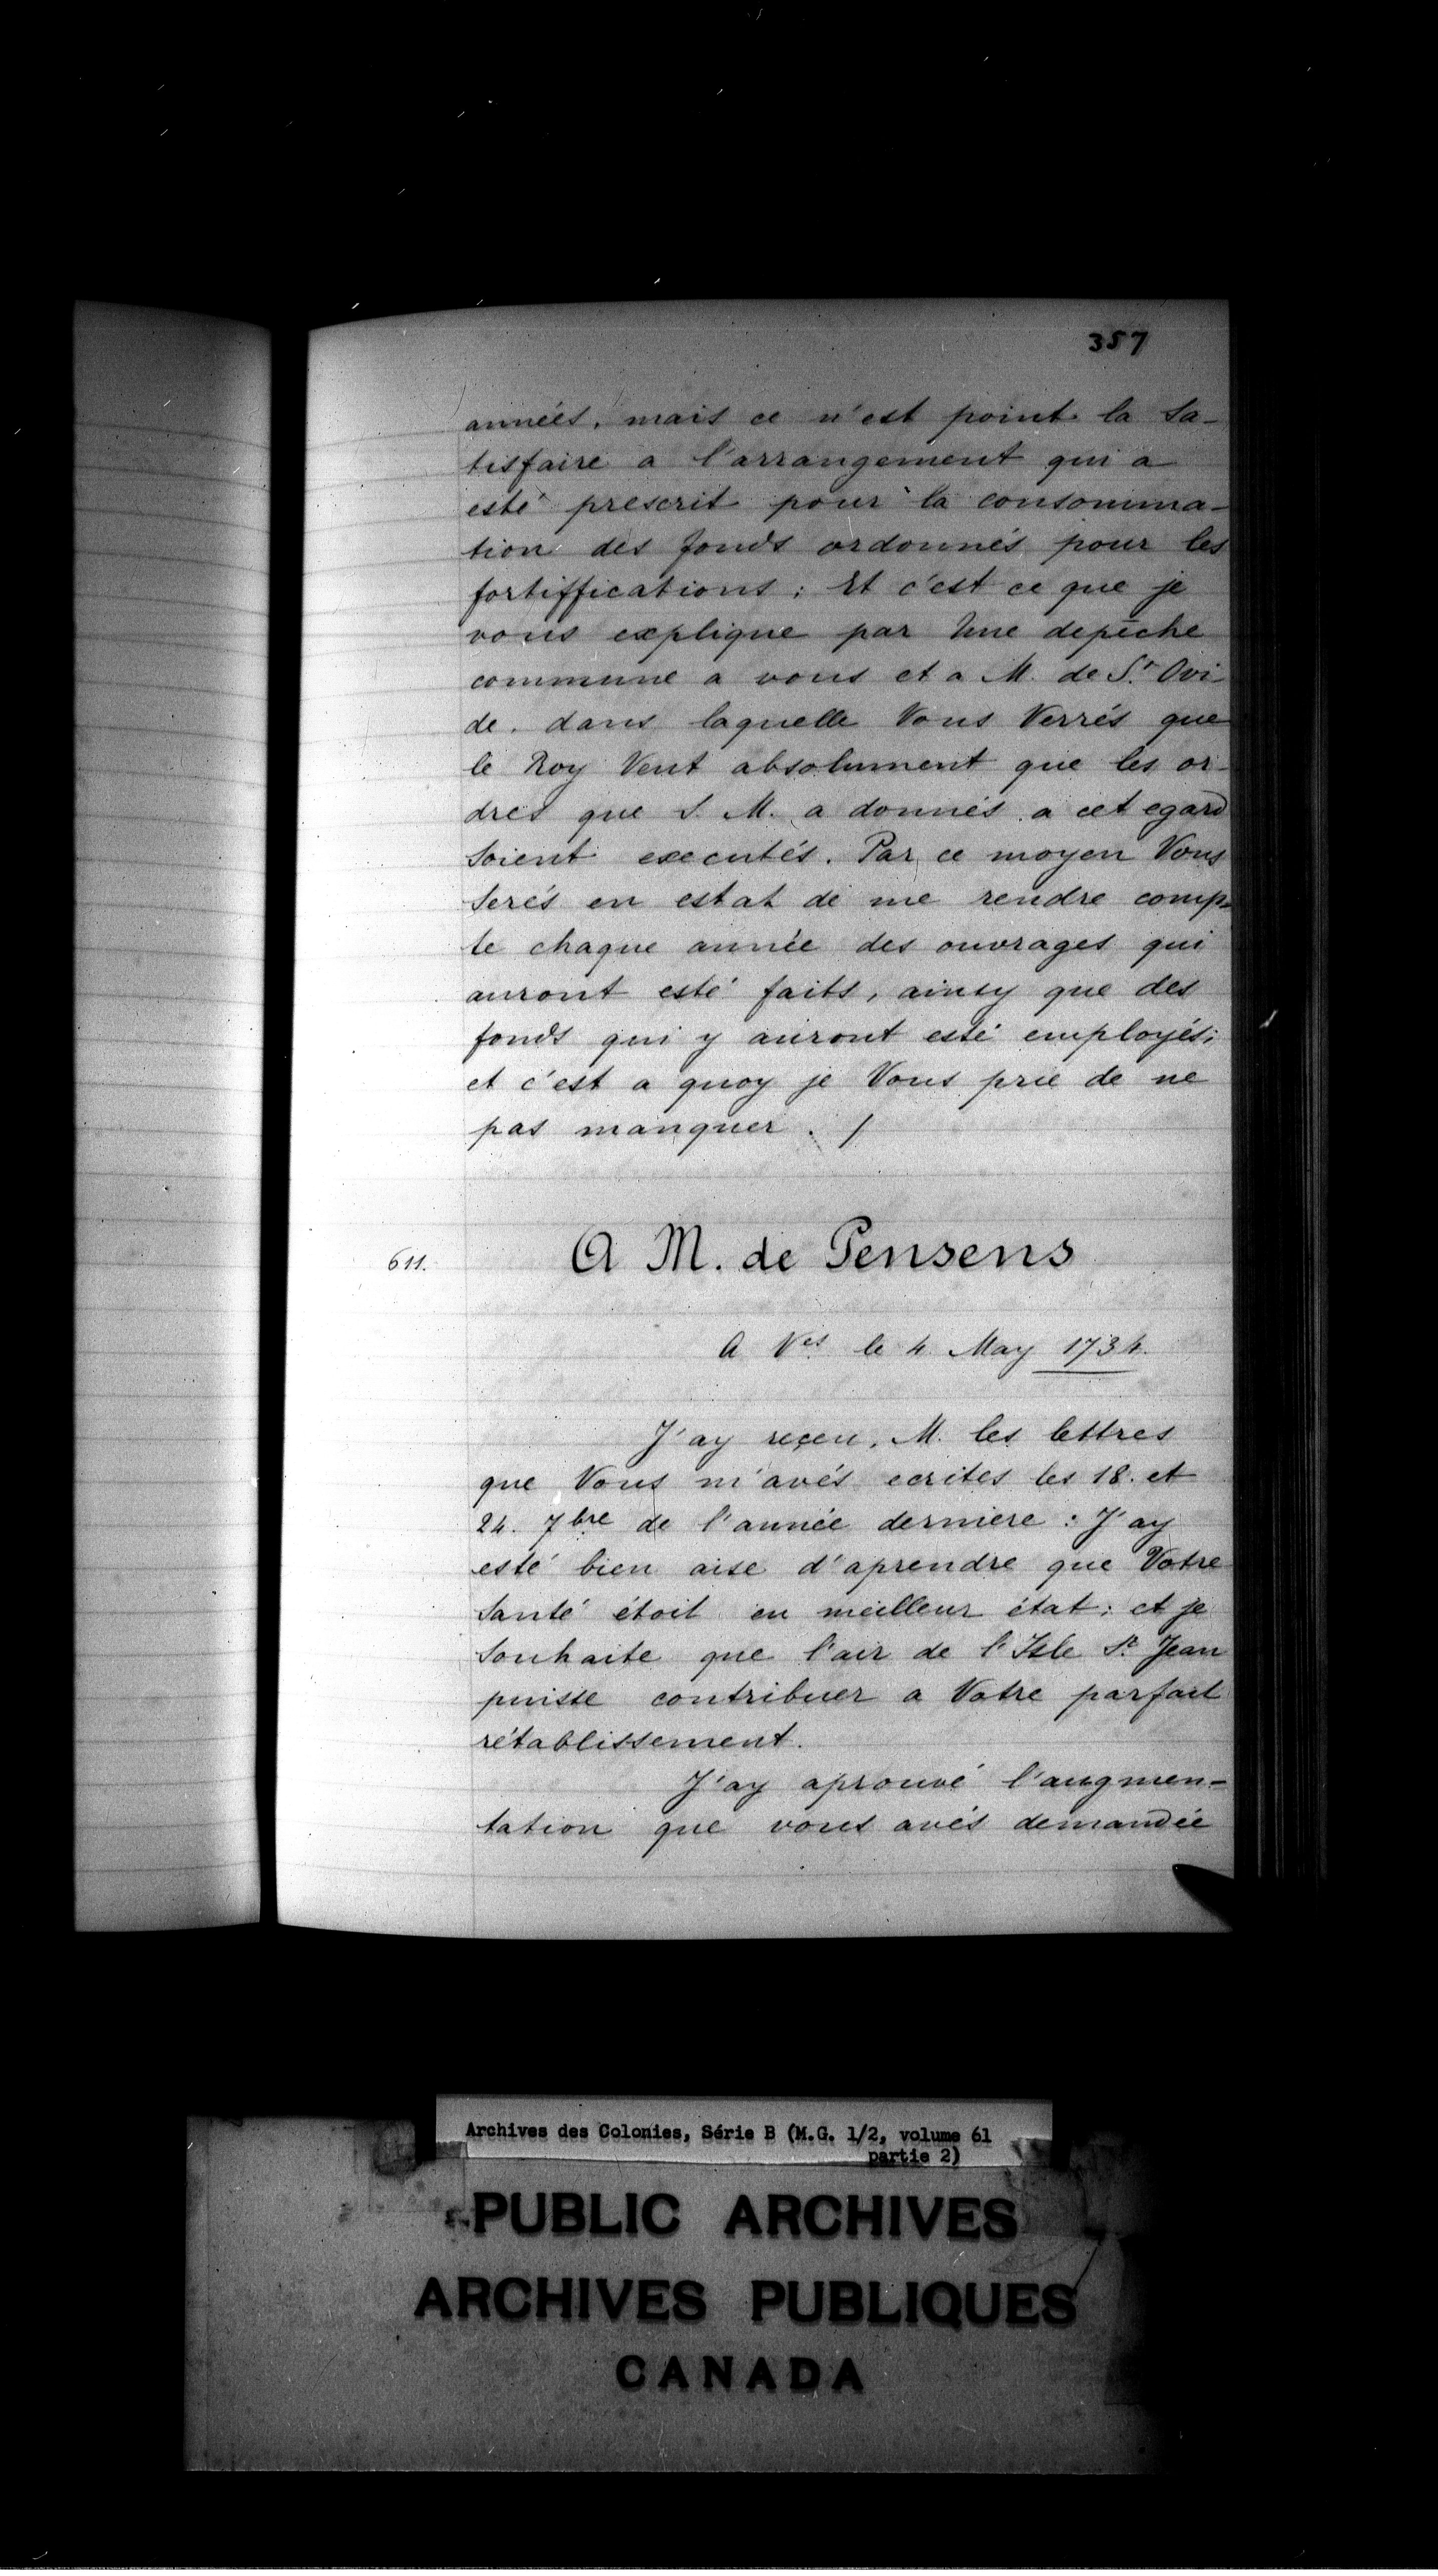 357
années, mais ce n'est point la sa-
tisfaire a l'arrangement qui a
esté prescrit pour la consomma-
tion des fonds ordonnés pour les
fortiffications; Et c'est ce que je
vous explique par Une depêche
commune a vous et a M. de St. Ovi-
de. dans laquelle Vous Verrés que
le Roy Veut absolument que les or-
dres que S. M. a donnés a cet egard
soient executés. Par ce moyen Vous
serés en estat de me rendre comp-
te chaque année des ouvrages qui
auront esté faits, ainsy que des
fonds qui y auront esté employés;
et c'est a quoy je Vous prie de ne
pas manquer. /
611.
A M. de Pensens
A Ves le 4 May 1734.
J'ay reçeu, M. les lettres
que Vous m'avés ecrites les 18. et
24. 7bre de l'année derniere: J'ay
esté bien aise d'aprendre que Votre
santé étoit en meilleur état; et je
souhaite que l'air de l'Isle St. Jean
puisse contribuer a Votre parfait
rétablissement.
J'ay aprouvé l'augmen-
tation que vous avés demandée
Archives des Colonies, Série B (M.G. 1/2, volume 61
partie 2)
PUBLIC ARCHIVES
ARCHIVES PUBLIQUES
CANADA